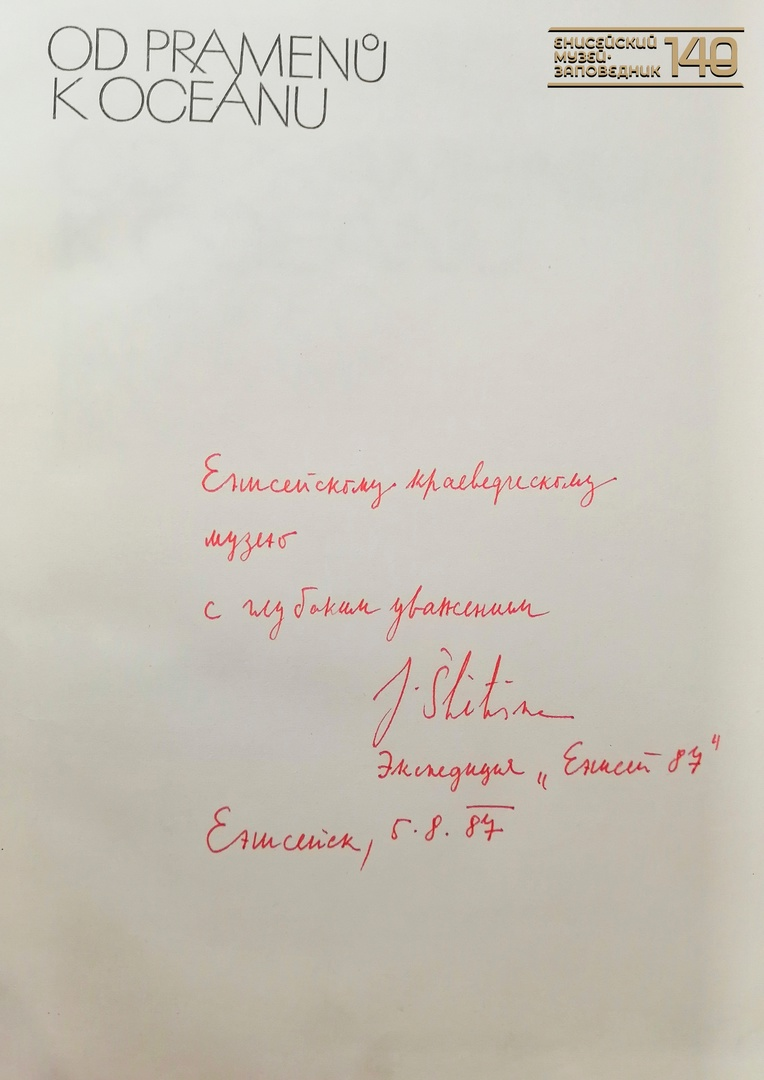 OD PRAMENŮ
K OCEÁNU
ЕНИСЕЙСКИЙ
МУЗЕЙ-
ЗАПОВЕДНИК
140
Енисейскому краеведческому
музею
с глубоким уважением
J.
Экспедиция „Енисей 87"
Енисейск, 5.8.87